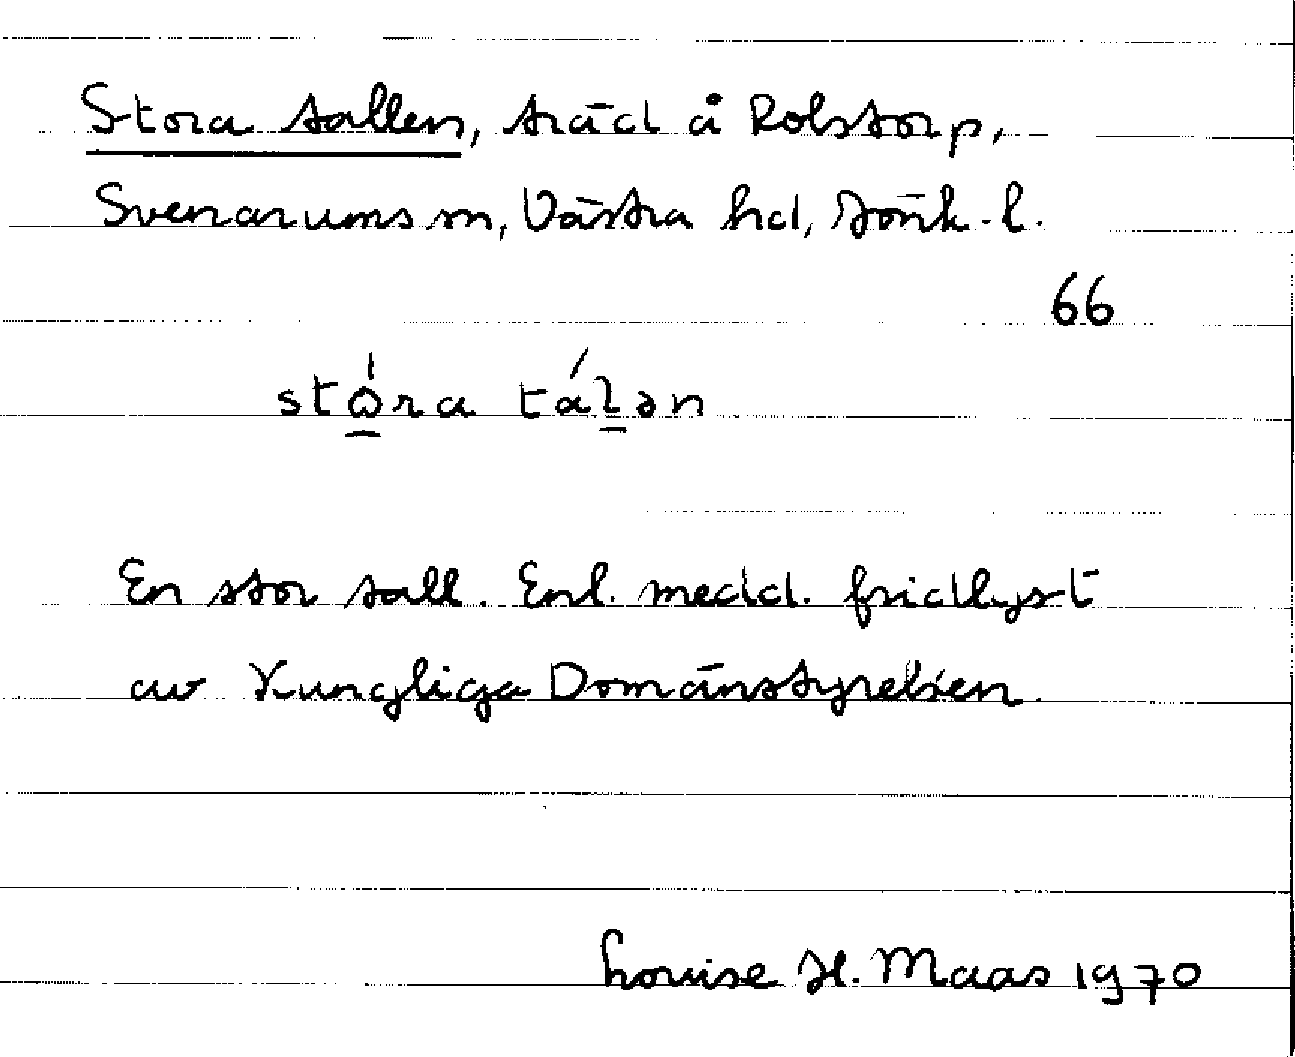 Stora tallen, träd å Rolstorp,
Svenarums sn, Västra hd, Jönk. l.
66
stòra tálən
En stor tall. Enl. medd. fridlyst
av Kungliga Domänstyrelsen.
Louise H. Maas 1970